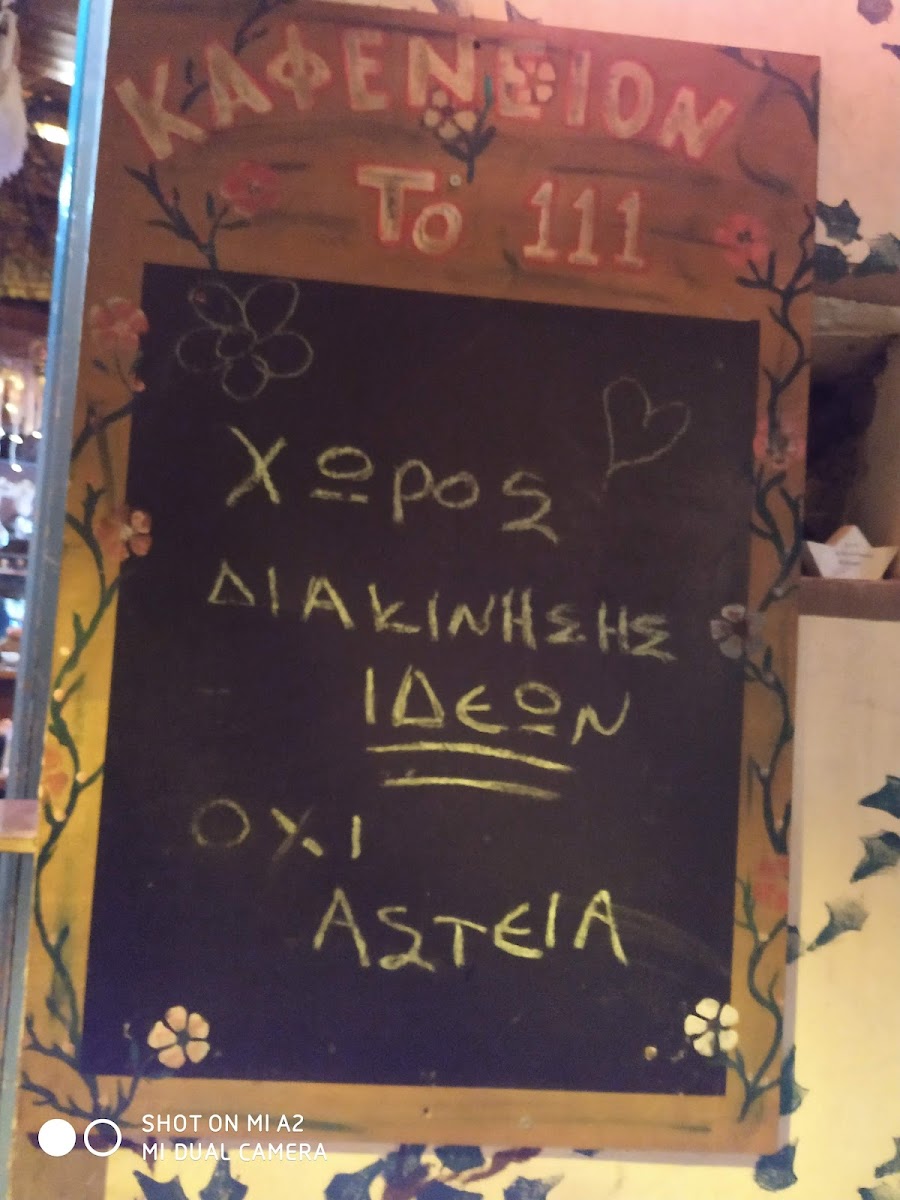 ΚΑΦΕΝΕΙΟΝ
Το 111
ΧΩΡΟΣ
ΔΙΑΚΙΝΗΣΗΣ
ΙΔΕΩΝ
ΟΧΙ
ΑΣΤΕΙΑ
SHOT ON MI A2
MI DUAL CAMERA